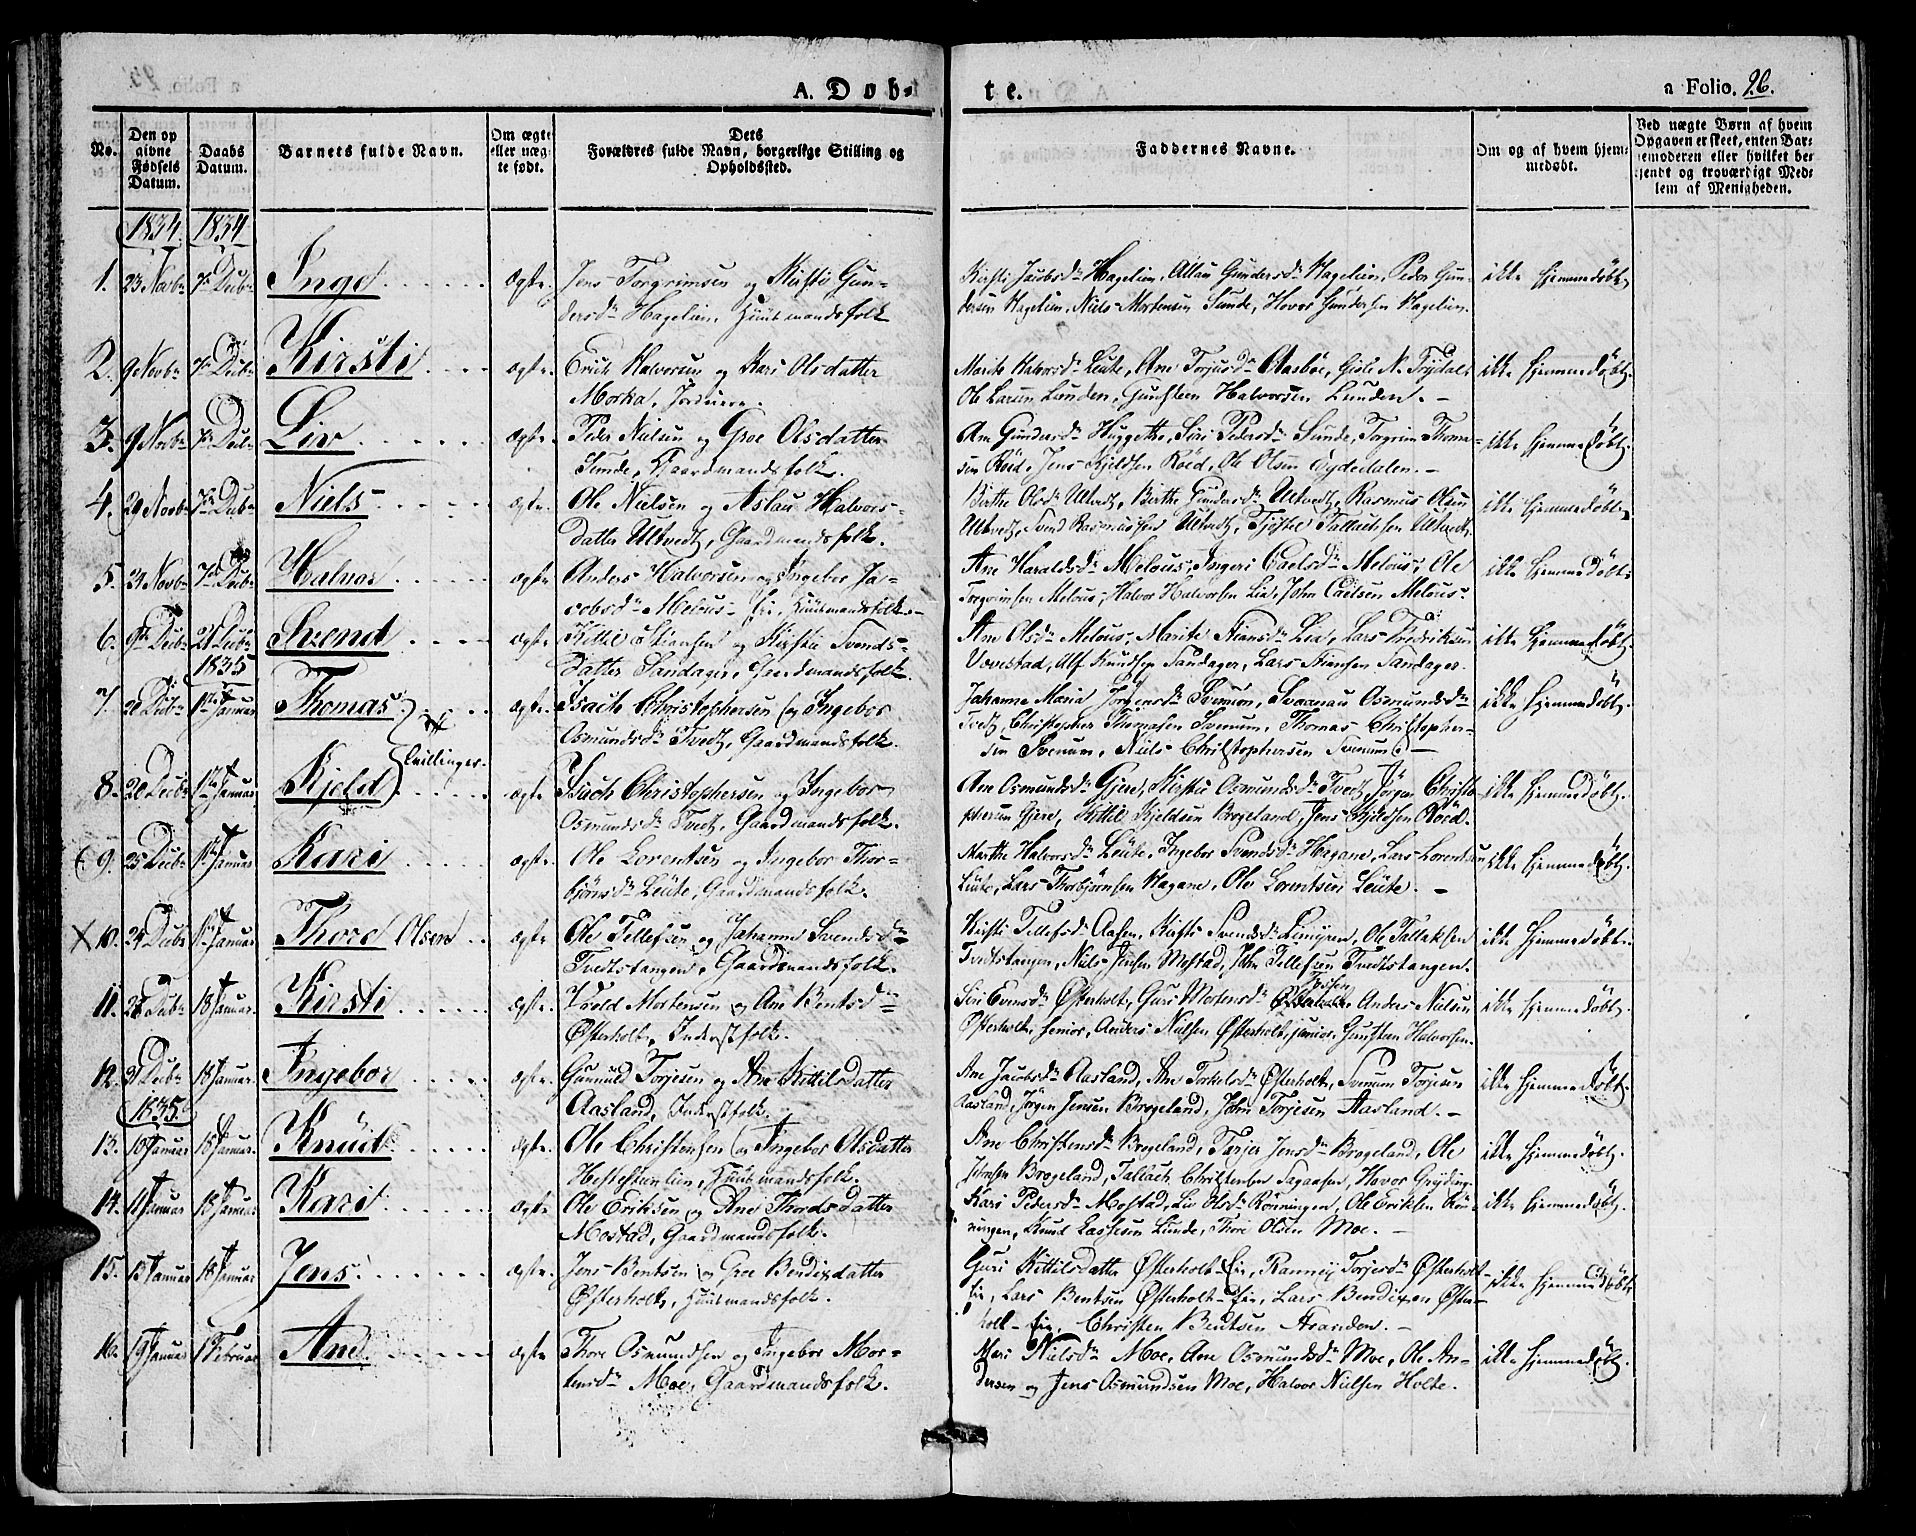 A. Døb-
te.
a Folio. 26.
No.
Den op
givne
Fødsels
Datum.
Daabs
Datum.
Barnets fulde Navn.
Om ægte
eller uæg-
te født.
Dets
Forældres fulde Navn, borgerlige Stilling og
Opholdssted.
Faddernes Navne.
Om og af hvem hjem-
medøbt.
Ved uægte Børn af hvem
Opgaven er skeet, enten Bar-
nemoderen eller hvilket be-
kjendt og troværdigt Med-
lem af Menigheden.
1834. 1834
1. 23 Novbr 7de Decbr Inge ægte. Jens Torgrimsen og Kirsti Gun-
dersdr Hagelien, Huusmandsfolk
Kirsti Jacobsdr Hagelien, Aslau Gundersdr Hagelien, Peder Gun-
dersen Hagelien, Niels Mortensen Sunde, Hovor Gundersen Hagelien.
ikke hjemmedøbt.
2. 9 Novbr 7de Decbr Kirsti ægte. Erick Halvorsen og Kari Olsdatter
Morka,
Marite Halvorsdr Leüte, Ane Torjusdr Aasbøe, Gisle N. Trydal
Ole Larsen Lunden, Gunsteen Halvorsen Lunden. -
ikke hjemmedøbt.
3. 9 Novbr 7de Decbr Liv ægte. Peder Nielsen og Groe Olsdatter
Sunde, Gaardmandsfolk.
Ane Gundersdr Huggethe, Siri Pedersdr Sunde, Torgrim Thoma-
sen Röed, Jens Kjeldsen Röed, Ole Olsen Eydedalen. -
ikke hjemmedøbt.
4. 20 Novbr 7de Decbr Niels ægte. Ole Nielsen og Aslau Halvors-
datter Ultvedt, Gaardmandsfolk.
Birthe Olsdr Ultvedt, Birthe Gundersdr Ultvedt, Rasmus Olsen
Ultvedt, Svend Rasmussen Ultvedt, Tjøstel Tallachsen Ultvedt.
ikke hjemmedøbt.
5. 23 Novbr 7de Decbr Halvor ægte. Anders Halvorsen og Ingebor Ja-
cobsdr Melous-Eie, Huusmandsfolk.
Ane Haraldsdr Melous, Ingeri Carlsdr Melöus, Ole
Torgrimsen Melous, Halvor Halvorsen Lia, John Carlsen Melous.
ikke hjemmedøbt.
6. 9de Decbr 21 Decbr Svend ægte. Kittil Stiansen og Kirstie Svends-
datter Sandager, Gaardmandsfolk.
Ane Olsdr Melous, Marite Stiansdr Lia, Lars Fredriksen
Vovestad, Alf Knudsen Sandager, Lars Stiansen Sandager.
ikke hjemmedøbt.
1835
7. 20 Decbr 1ste Januar Thomas ægte. Isach Christophersen og Ingebor
Osmundsdr Tvedt, Gaardmandsfolk.
Johanne Maria Jørgensdr Svenum, Svaanau Osmundsdr
Tvedt, Christopher Thomasen Svenum, Thomas Christopher-
sen Svenum, Niels Christophersen Svenum. -
ikke hjemmedøbt.
Tvillinger.
8. 20 Decbr 1ste Januar Kjeld ægte Isach Christophersen og Ingebor
Osmundsdr Tvedt, Gaardmandsfolk.
Ane Osmundsdr Gjere, Kirstie Osmundsdr Tvedt, Jörgen Christo-
phersen Gjere, Kittil Kjeldsen Brogeland, Jens Kjeldsen Röed.
ikke hjemmedøbt.
9. 25 Decbr 1ste Januar Kari ægte. Ole Lorentsen og Ingebor Thor-
björnsdr Leüte, Gaardmandsfolk.
Marthe Halvorsdr Leüte, Ingebor Svendsdr Hagane, Lars Lorentsen
Leüte, Lars Thorbjørnsen Hagane, Ole Lorentsen Leüte. -
ikke hjemmedøbt.
X 10. 24 Decbr 1ste Januar Thore Olsen ægte Ole Tellefsen og Johanne Svendsdr
Tvedtstangen, Gaardmandsfolk.
Kirsti Tellefsdr Aasen, Kirsti Svendsdr Limyren, Ole Tallaksen
Tvedtstangen, Niels Jensen Mostad, John Tellefsen Tvedtstangen.
ikke hjemmedøbt.
11. 28 Decbr 18 Januar. Kirsti ægte. Troeld Mortensen og Ane Bentsdr
Østerholt, Inderstfolk.
Siri Evensdr Østerholt, Guri Mortensdr Anders Nielsen
Østerholt, senior, Anders Nielsen Østerholt, junior, Gunsteen Halvorsen.
ikke hjemmedøbt.
12. 31 Decbr 18 Januar. Ingebor ægte. Gunnuld Torjesen og Ane Kittilsdatter
Aasland, Inderstfolk.
Ane Jacobsdr Aasland, Ane Torkelsdr Østerholt, Svenum Torjesen
Aasland, Jörgen Jensen Brogeland, John Torjesen Aasland. -
ikke hjemmedøbt.
1835
13. 10 Januar 18 Januar. Knüd ægte. Ole Christensen og Ingebor Olsdatter
Hestesteenlien, Huusmandsfolk.
Ane Christensdr Brogeland, Tarjer Jensdr Brogeland, Ole
Jensen Brogeland, Tallach Christensen Sagaasen, Hovor Gryting.
ikke hjemmedøbt.
14. 11 Januar 18 Januar Kari ægte Ole Eriksen og Ane Thordsdatter
Mostad, Gaardmandsfolk.
Kari Pedersdr Mostad, Liv Olsdr Rönningen, Ole Eriksen Rön-
ningen, Knud Lassesen Lunde, Thore Olsen Moe. -
ikke hjemmedøbt.
15. 13 Januar 18 Januar Jens ægte. Jens Bentsen og Groe Bendixdatter
Østerholt, Huusmandsfolk.
Guri Kittilsdatter Østerholt-Eie, Ranneij Torjesdr Østerholt-
Eie, Lars Bentsen Østerholt-Eie, Lars Bendixen Øster-
holt-Eie, Christen Bentsen Stranden. -
ikke hjemmedøbt
16. 19 Januar 1 Februar Ane ægte Thore Osmundsen og Ingebor Mor-
tensdr Moe, Gaardmandsfolk.
Mari Nielsdr Moe, Ane Osmundsdr Moe, Ole An-
dersen og Jens Osmundsen Moe, Halvor Nielsen Holte.
ikke hjemmedøbt.